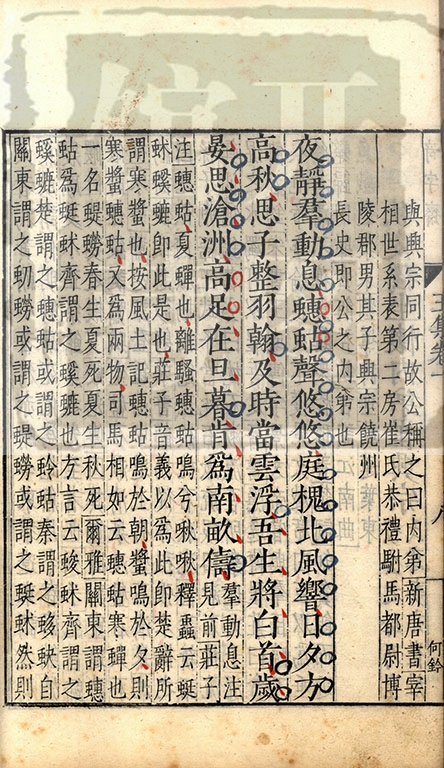 與興宗同行故公稱之曰内弟新唐書宰
相世系表第二房崔氏恭禮駙馬都尉博
陵郡男其子興宗饒州
長史即公之内弟也
夜靜羣動息蟪蛄聲悠悠庭槐北風響日夕方
高秋思子整羽翰及時當雲浮吾生將白首歲
晏思滄洲高足在旦暮肯爲南畝儔
羣動息注
見前莊子
注蟪蛄夏蟬也離騷蟪蛄鳴兮啾啾釋蟲云蜓
蚞螇螰即此是也莊子音義以爲此即楚辭所
謂寒螿也按風土記蟪蛄鳴於朝螿鳴於夕則
寒螿蟪蛄又爲兩物司馬相如云蟪蛄寒蟬也
一名蝭蟧春生夏死夏生秋死爾雅關東謂蟪
蛄爲蜓蚞齊謂之螇螰也方言云蛥蚗齊謂之
螇螰楚謂之蟪蛄或謂之蛉蛄秦謂之蛥蚗自
關東謂之虭蟧或謂之蝭蟧或謂之蜓蚞然則
八
何鈴